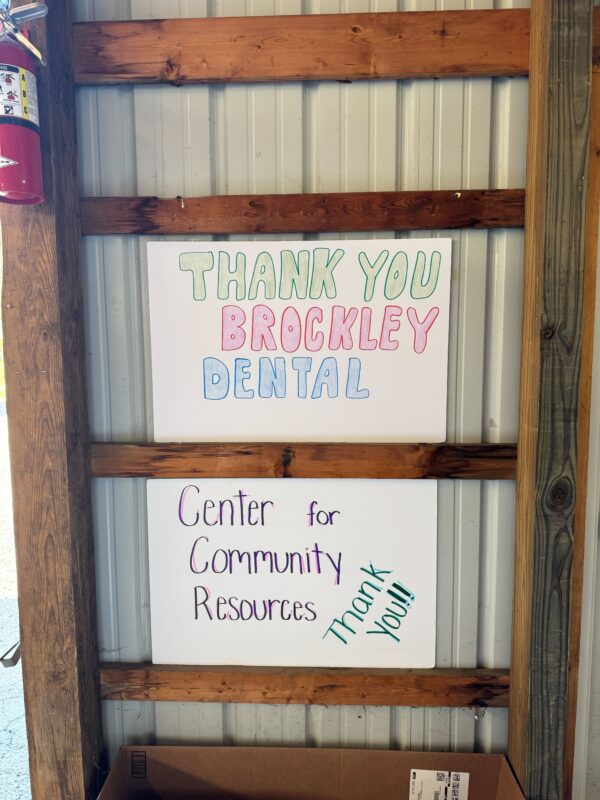 THANK YOU
BROCKLEY
DENTAL
Center for
Community
Resources
Thank
you!!